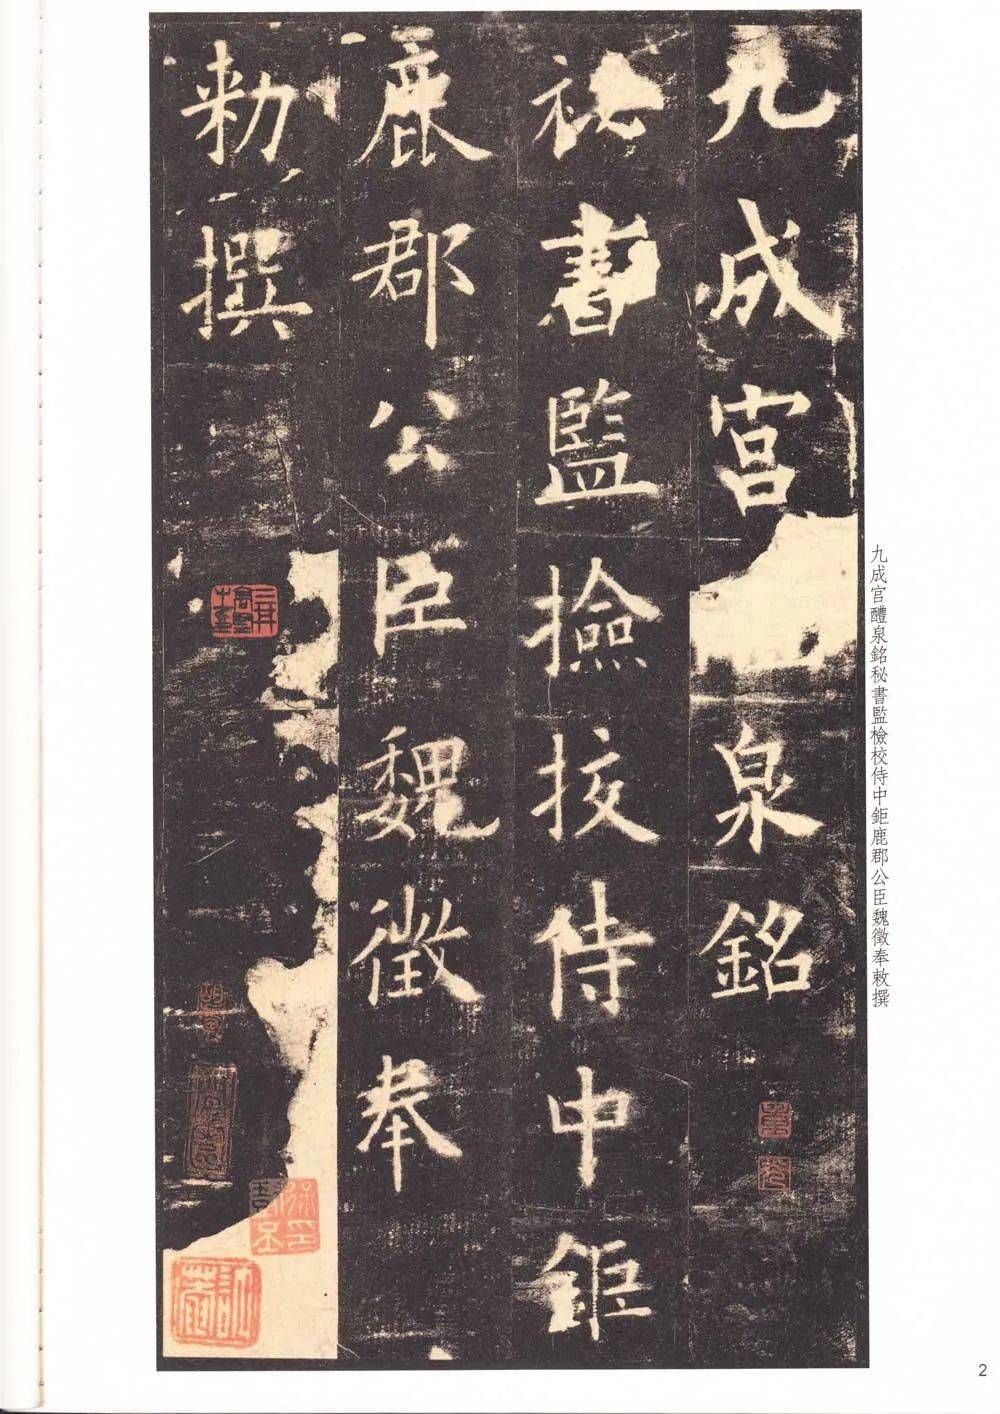 九成宮泉銘
祕書監撿挍侍中鉅
鹿郡公臣魏徵奉
勑撰
九成宮醴泉銘秘書監檢校侍中鉅鹿郡公臣魏徵奉敕撰
2